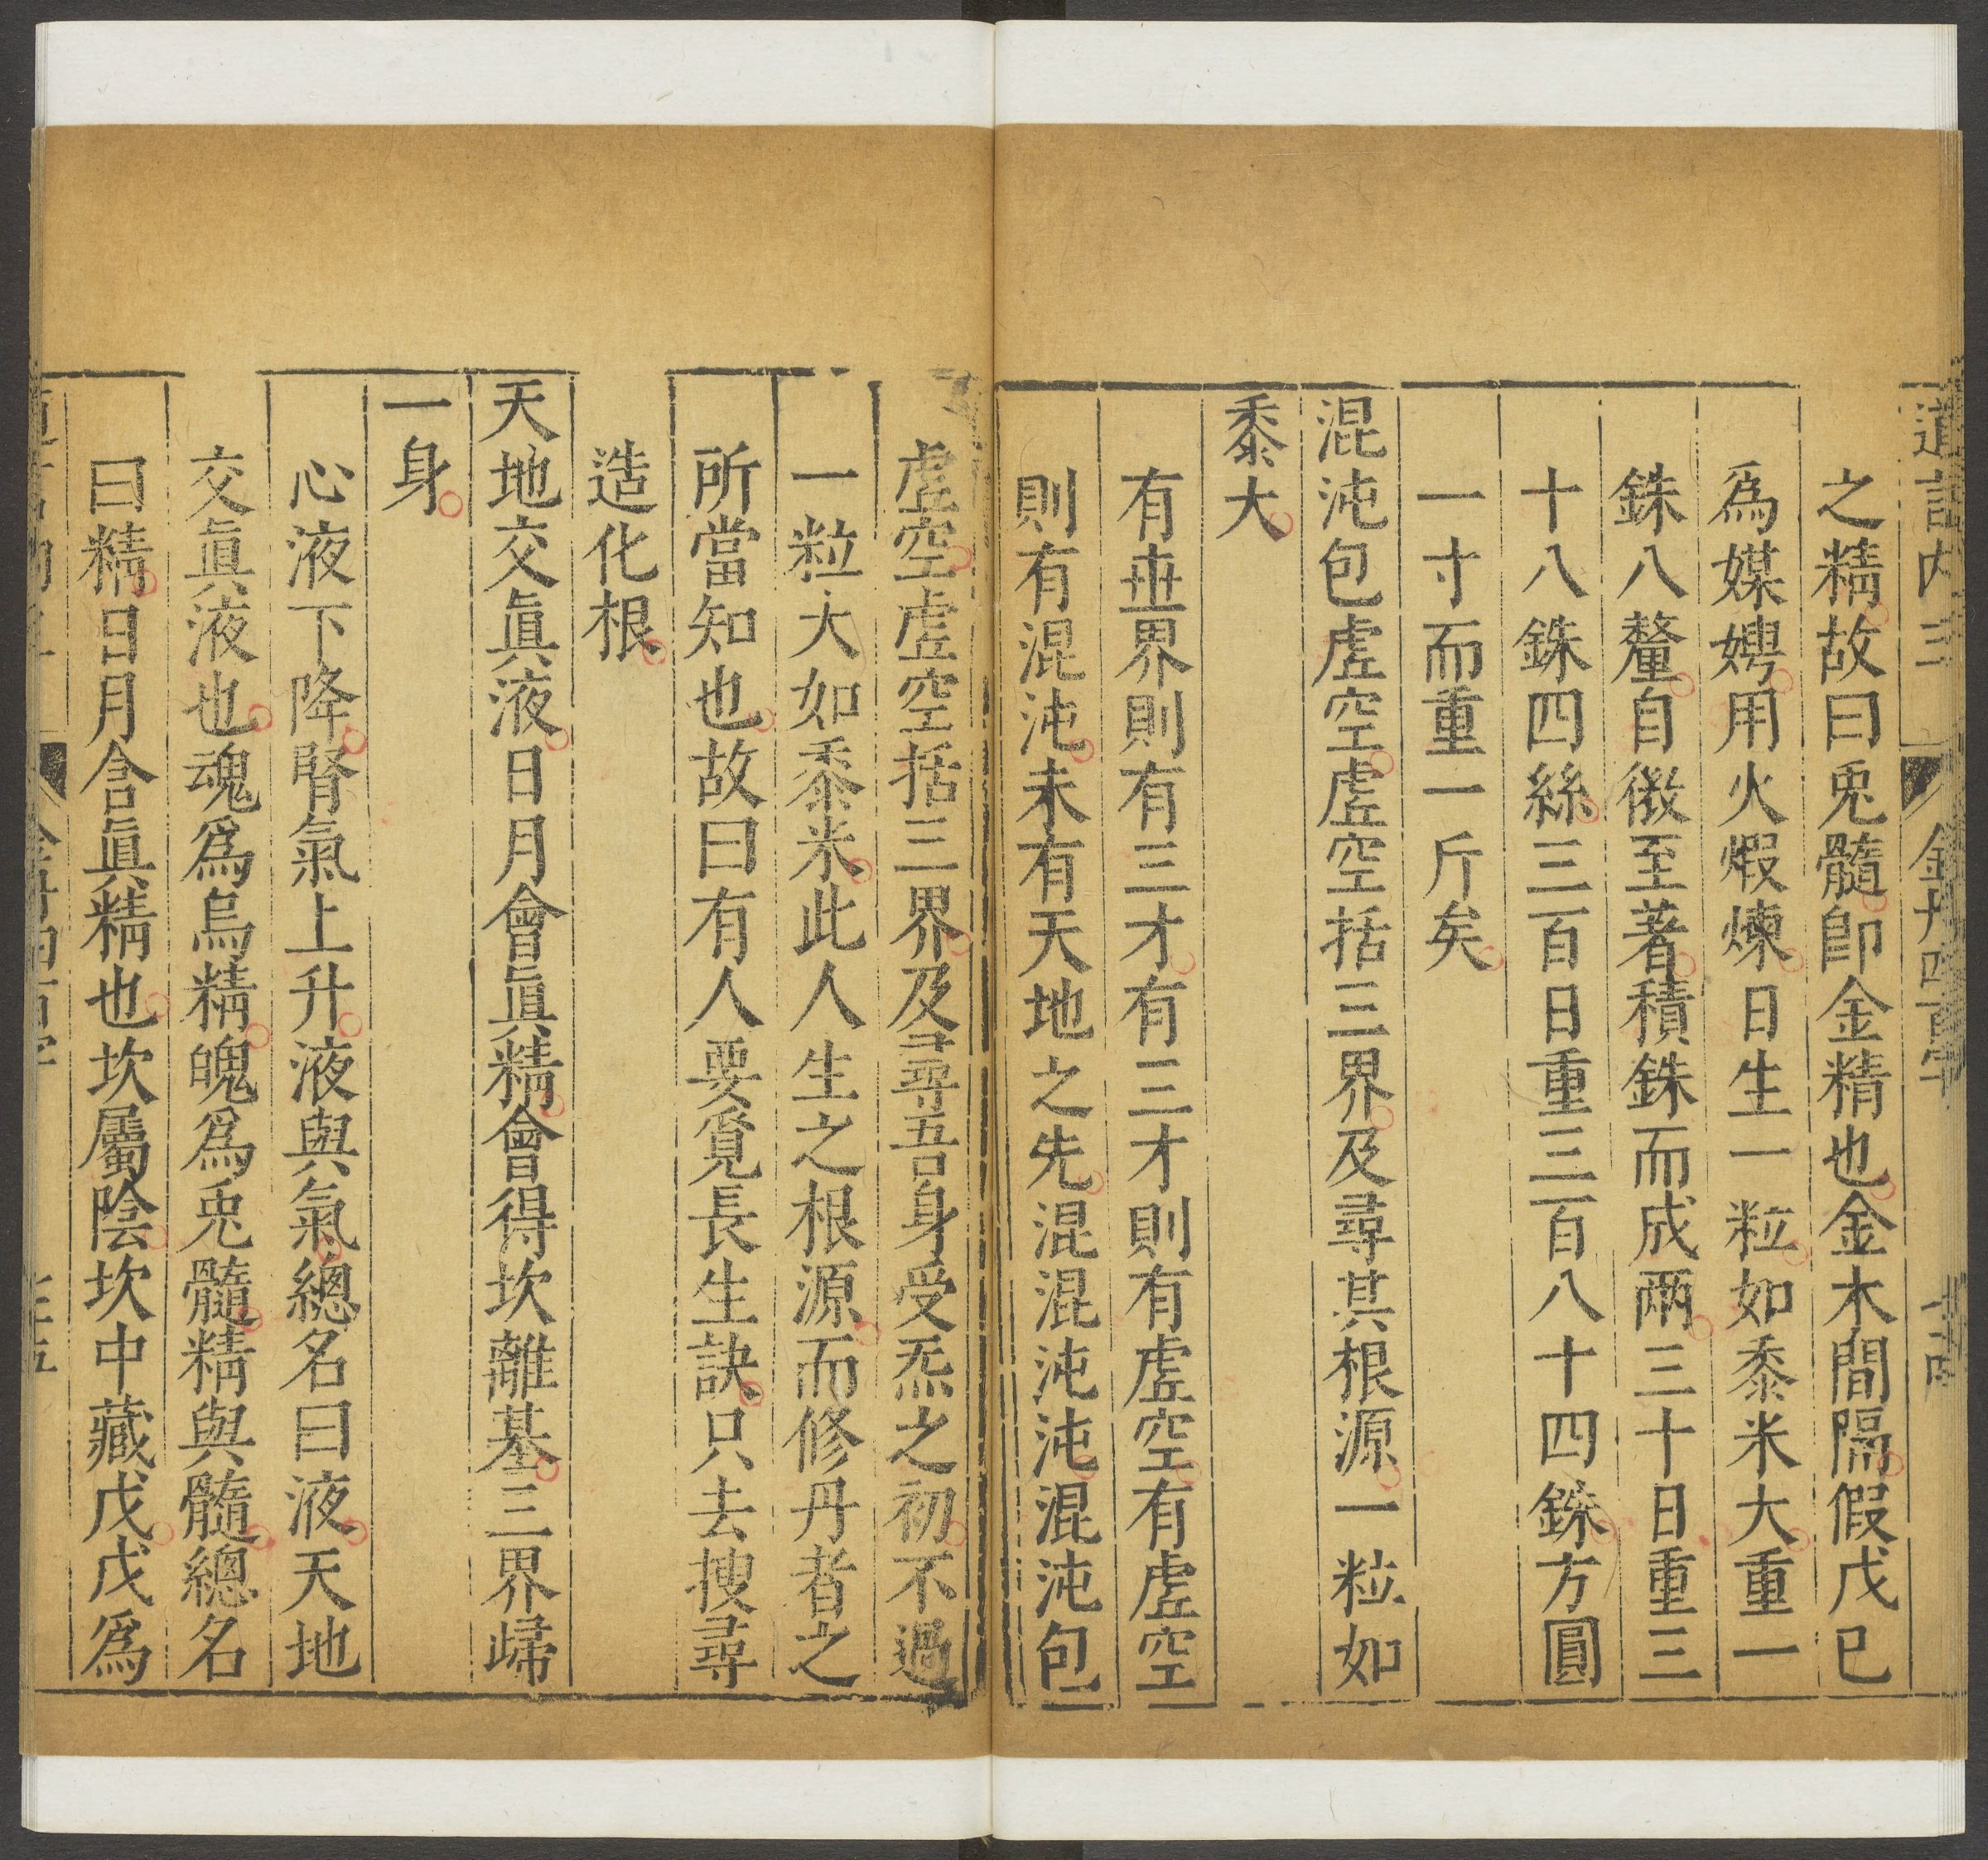 道言内 金丹四百字
之精故曰兎髓卽金精也金木間隔假戊已
爲媒娉用火煆煉日生一粒如黍米大重一
銖八釐自微至著積銖而成兩三十日重三
十八銖四絲三百日重三百八十四銖方圓
一寸而重一斤矣
混沌包虛空虛空括三界及尋其根源一粒如
黍大
有世界則有三才有三才則有虛空有虛空
則有混沌未有天地之先混混沌沌混沌包
虛空虛空括三界及尋吾身受炁之初不過
一粒大如黍米此人生之根源而修丹者之
所當知也故曰有人要覓長生訣只去搜尋
造化根
天地交眞液日月會眞精會得坎離基三界歸
一身
心液下降腎氣上升液與氣總名曰液天地
交眞液也魂爲烏精魄爲兎髓精與髓總名
曰精日月含眞精也坎屬陰坎中藏戊戊爲